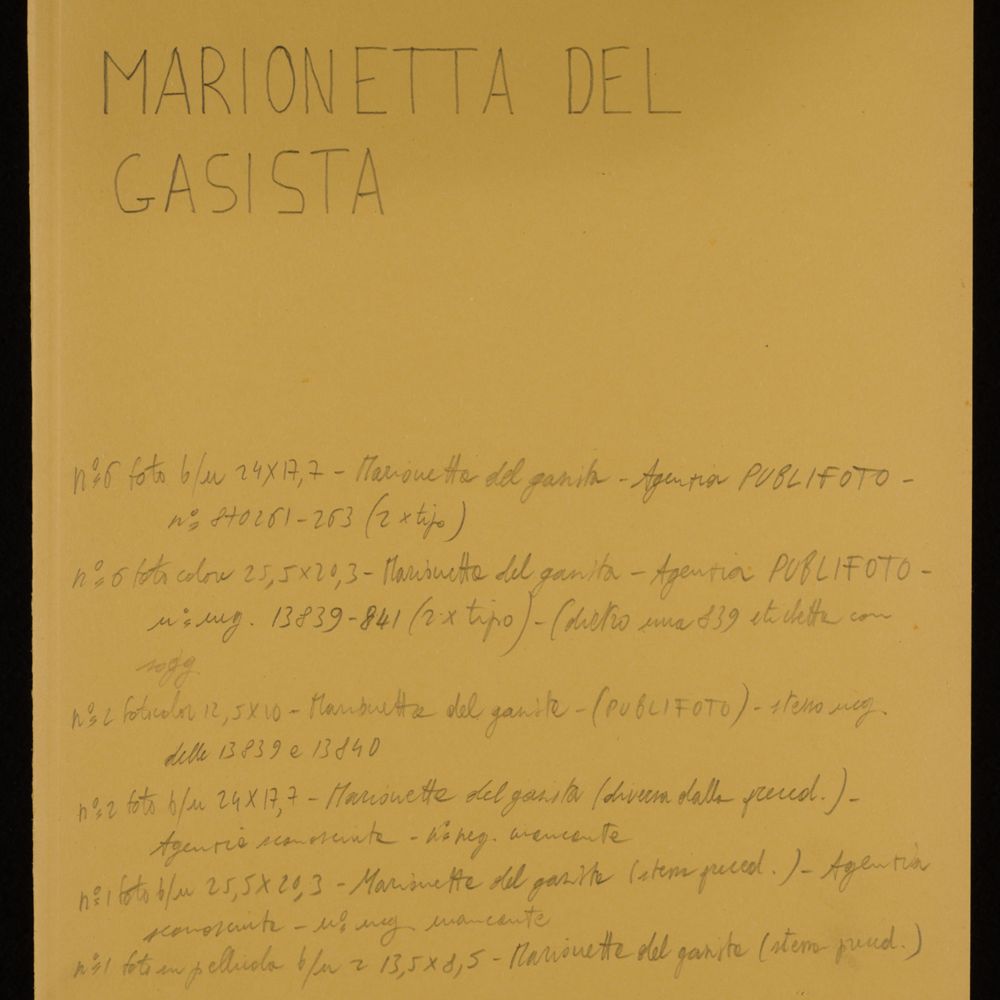 MARIONETTA DEL
GASISTA
n°=6 foto b/n 24x17,7 - Marionetta del gasista - Agenzia PUBLIFOTO -
n°= 870261-263 (2 x tipo)
n°=6 foto colore 25,5x20,3 - Marionetta del gasista - Agenzia PUBLIFOTO -
n°= neg. 13839-841 (2 x tipo) - (dietro una 839 etichetta con
sogg
n°=2 fotocolor 12,5x10 - Marionetta del gasista - (PUBLIFOTO) - stesso neg.
delle 13839 e 13840
n°=2 foto b/n 24x17,7 - Marionetta del gasista (diversa dalla preced.) -
Agenzia sconosciuta - n°= neg. mancante
n°=1 foto b/n 25,5x20,3 - Marionetta del gasista (stessa preced.) - Agenzia
sconosciuta - n°= neg. mancante
n°=1 foto in pellicola b/n 13,5x8,5 - Marionetta del gasista (stessa preced.)